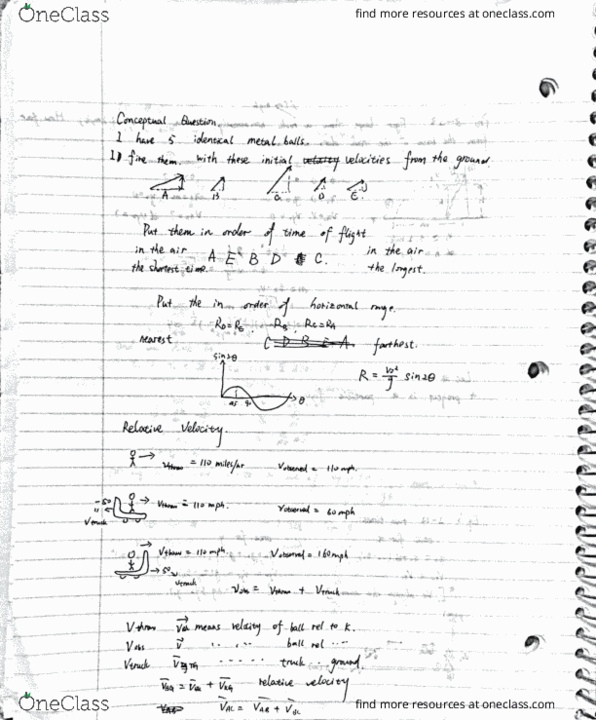 OneClass
find more resources at oneclass.com
Conceptual Question.
I have 5 identical metal balls.
I fire them with these initial velocities from the ground
A B C D E
Put them in order of time of flight
in the air A E B D C. in the air
the shortest time. the longest.
Put the in order of horizontal range.
RD=RE RB RC=RA
nearest C D B E A farthest.
sin2θ
R = v₀²/g sin2θ
45 90 θ
Relative Velocity.
Vthrow = 110 miles/hr Vobserved = 110 mph.
-50
Vthrow = 110 mph. Vobserved = 60 mph
Vtruck
Vthrow = 110 mph. Vobserved = 160 mph
→50
Vtruck
Vobs = Vthrow + Vtruck
Vthrow means velocity of ball rel to
Vobs ball rel
Vtruck truck ground.
relative velocity
VAC = VAB + VBC
OneClass
find more resources at oneclass.com